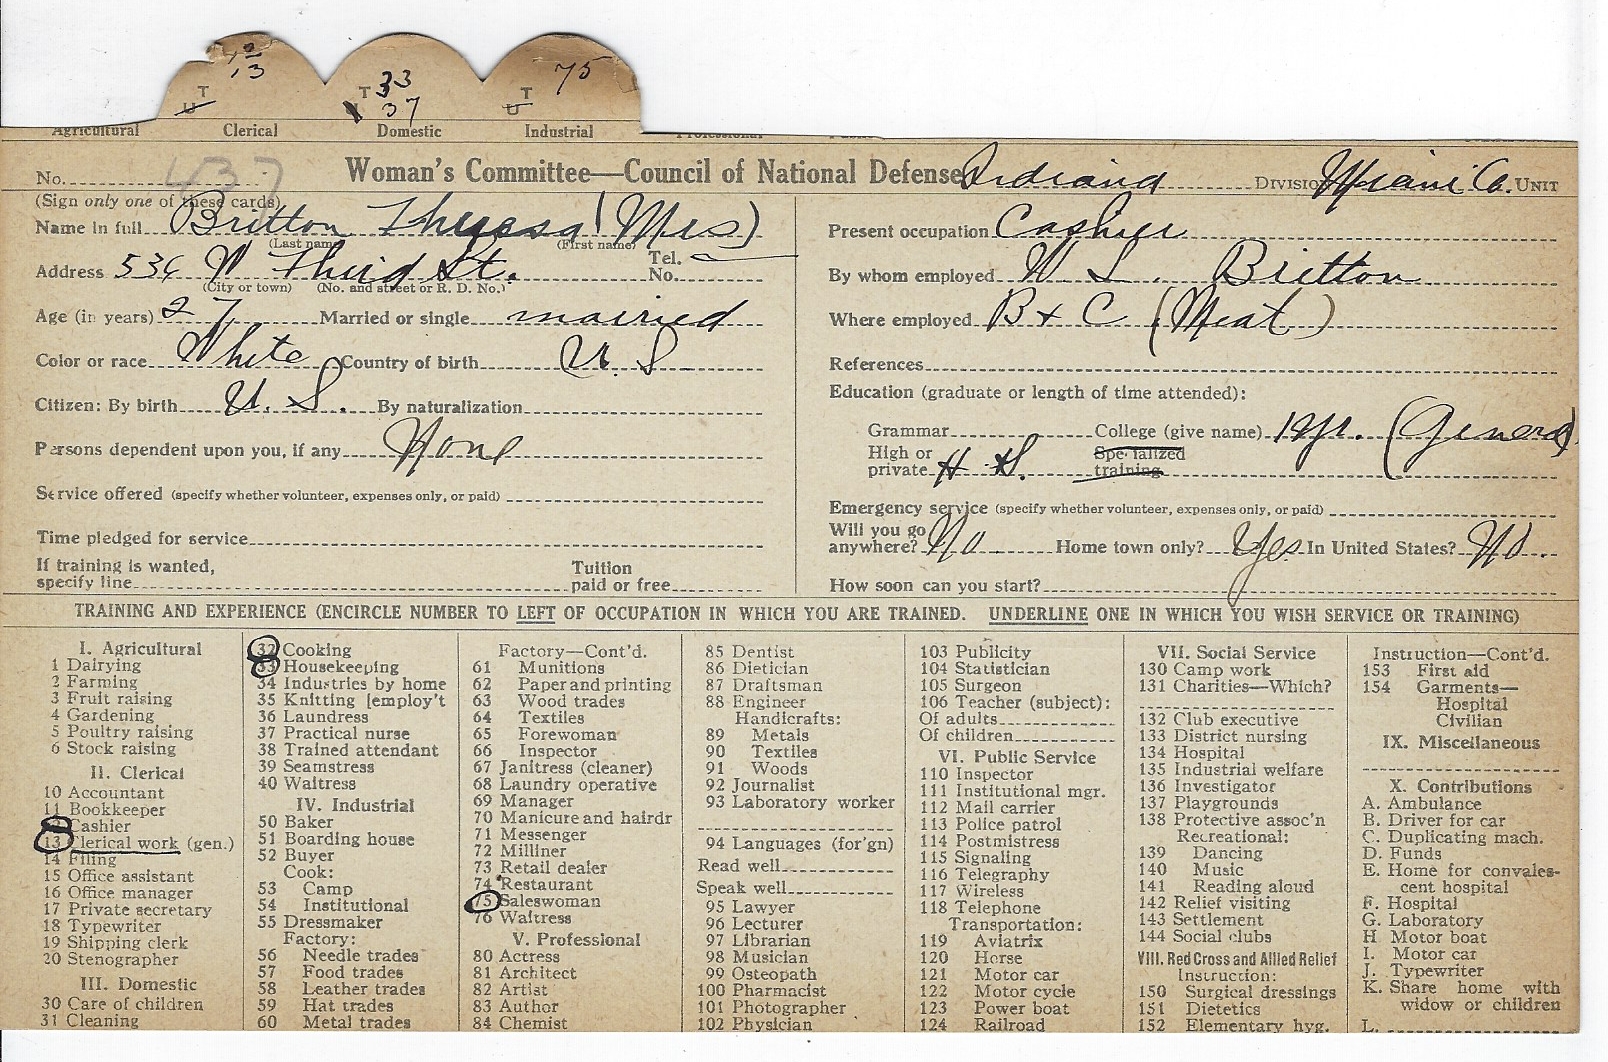 12
13 33 75
T T 37 T
U U
Agricultural Clerical Domestic Industrial Professional
No. 437 Woman's Committee—Council of National Defense Indiana Division Miami Co. Unit
(Sign only one of these cards)
Name in full Britton Theresa (Mrs)
(Last name) (First name)
Address 536 W Third St. Tel. No.
(City or town) (No. and street or R. D. No.)
Age (in years) 27 Married or single married
Color or race White Country of birth U. S
Citizen: By birth U. S. By naturalization
Persons dependent upon you, if any None
Service offered (specify whether volunteer, expenses only, or paid)
Time pledged for service
If training is wanted,
specify line Tuition
paid or free
Present occupation Cashier
By whom employed W L. Britton
Where employed B + C (Meat)
References
Education (graduate or length of time attended):
Grammar College (give name) 1 yr. (General)
High or
private H. S. Specialized
training
Emergency service (specify whether volunteer, expenses only, or paid)
Will you go
anywhere? No Home town only? Yes. In United States? No.
How soon can you start?
TRAINING AND EXPERIENCE (ENCIRCLE NUMBER TO LEFT OF OCCUPATION IN WHICH YOU ARE TRAINED. UNDERLINE ONE IN WHICH YOU WISH SERVICE OR TRAINING)
I. Agricultural
1 Dairying
2 Farming
3 Fruit raising
4 Gardening
5 Poultry raising
6 Stock raising
II. Clerical
10 Accountant
11 Bookkeeper
12 Cashier
13 Clerical work (gen.)
14 Filing
15 Office assistant
16 Office manager
17 Private secretary
18 Typewriter
19 Shipping clerk
20 Stenographer
III. Domestic
30 Care of children
31 Cleaning
32 Cooking
33 Housekeeping
34 Industries by home
35 Knitting [employ't
36 Laundress
37 Practical nurse
38 Trained attendant
39 Seamstress
40 Waitress
IV. Industrial
50 Baker
51 Boarding house
52 Buyer
Cook:
53 Camp
54 Institutional
55 Dressmaker
Factory:
56 Needle trades
57 Food trades
58 Leather trades
59 Hat trades
60 Metal trades
Factory—Cont'd.
61 Munitions
62 Paper and printing
63 Wood trades
64 Textiles
65 Forewoman
66 Inspector
67 Janitress (cleaner)
68 Laundry operative
69 Manager
70 Manicure and hairdr
71 Messenger
72 Milliner
73 Retail dealer
74 Restaurant
75 Saleswoman
76 Waitress
V. Professional
80 Actress
81 Architect
82 Artist
83 Author
84 Chemist
85 Dentist
86 Dietician
87 Draftsman
88 Engineer
Handicrafts:
89 Metals
90 Textiles
91 Woods
92 Journalist
93 Laboratory worker
94 Languages (for'gn)
Read well
Speak well
95 Lawyer
96 Lecturer
97 Librarian
98 Musician
99 Osteopath
100 Pharmacist
101 Photographer
102 Physician
103 Publicity
104 Statistician
105 Surgeon
106 Teacher (subject):
Of adults
Of children
VI. Public Service
110 Inspector
111 Institutional mgr.
112 Mail carrier
113 Police patrol
114 Postmistress
115 Signaling
116 Telegraphy
117 Wireless
118 Telephone
Transportation:
119 Aviatrix
120 Horse
121 Motor car
122 Motor cycle
123 Power boat
124 Railroad
VII. Social Service
130 Camp work
131 Charities—Which?
132 Club executive
133 District nursing
134 Hospital
135 Industrial welfare
136 Investigator
137 Playgrounds
138 Protective assoc'n
Recreational:
139 Dancing
140 Music
141 Reading aloud
142 Relief visiting
143 Settlement
144 Social clubs
VIII. Red Cross and Allied Relief
Instruction:
150 Surgical dressings
151 Dietetics
152 Elementary hyg.
Instruction—Cont'd.
153 First aid
154 Garments—
Hospital
Civilian
IX. Miscellaneous
X. Contributions
A. Ambulance
B. Driver for car
C. Duplicating mach.
D. Funds
E. Home for convales-
cent hospital
F. Hospital
G. Laboratory
H Motor boat
I. Motor car
J. Typewriter
K. Share home with
widow or children
L.